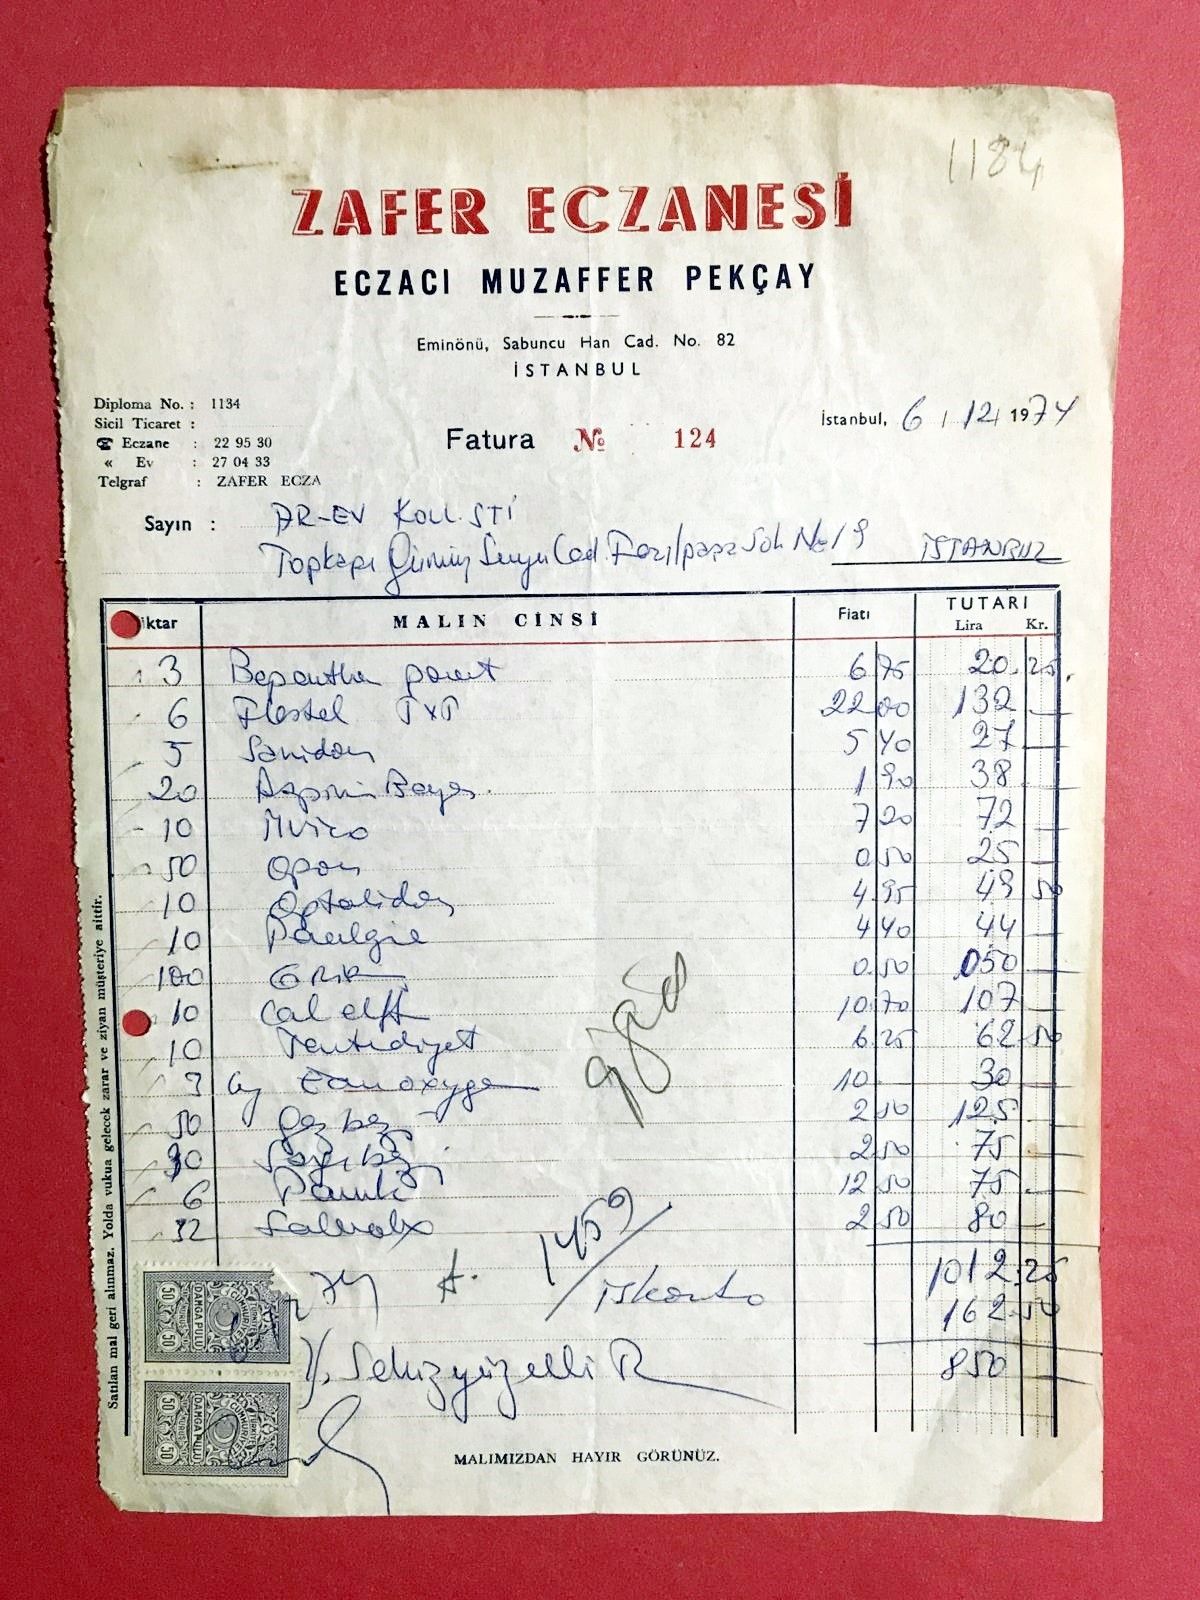 1184
ZAFER ECZANESİ
ECZACI MUZAFFER PEKÇAY
Eminönü, Sabuncu Han Cad. No. 82
İSTANBUL
Diploma No. : 1134
Sicil Ticaret :
☎ Eczane : 22 95 30
« Ev : 27 04 33
Telgraf : ZAFER ECZA
Fatura № 124
İstanbul, 6 / 12 / 1974
Sayın : AR-EV KOLL. STİ
Topkapı Gümüş Suyu Cad. Fazılpaşa Sok No 19 İSTANBUL
iktar MALIN CİNSİ Fiatı TUTARI
Lira Kr.
3 6 75 20 25
6 22 00 132
5 Sanidon 5 40 27
20 Aspirin Bayer 1 90 38
10 7 20 72
50 Opon 0 50 25
10 Optalidon 4 95 49 50
10 4 40 44
100 GRİPİN 0.50 050
10 10 70 107
10 Tentürdiyot 6 25 62 50
3 10 30
50 Gaz bezi 2 50 125
30 Sargı bezi 2 50 75
6 Pamuk 12 50 75
32 2 50 80
1012.25
1459 iskonto 162.50
Sekizyüzelli 850
Satılan mal geri alınmaz. Yolda vukua gelecek zarar ve ziyan müşteriye aittir.
50 50
TÜRKİYE CUMHURİYETİ
DAMGA PULU
50 50
TÜRKİYE CUMHURİYETİ
DAMGA PULU
MALIMIZDAN HAYIR GÖRÜNÜZ.